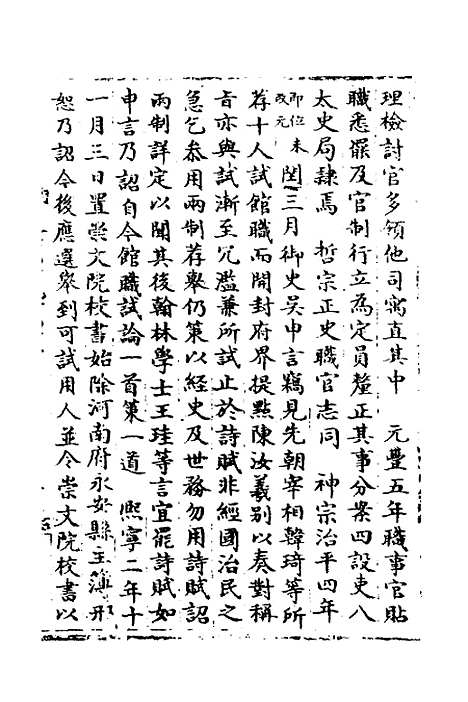 理檢討官多領他司寓直其中　元豐五年職事官貼
職悉罷及官制行立為定員釐正其事分案四設吏八
太史局隸焉　哲宗正史職官志同　神宗治平四年
即位未改元閏三月御史吳申言竊見先朝宰相韓琦等所
荐十人試館職而開封府界提點陳汝羲別以奏對稱
旨亦與試漸至冗濫兼所試止於詩賦非經國治民之
急乞叅用兩制荐舉仍策以經史及世務勿用詩賦詔
兩制詳定以聞其後翰林學士王珪等言宜罷詩賦如
申言乃詔自今館職試論一首策一道　熙寧二年十
一月三日置崇文院校書始除河南府永安縣主簿邢
恕乃詔今後應選舉到可試用人並令崇文院校書以